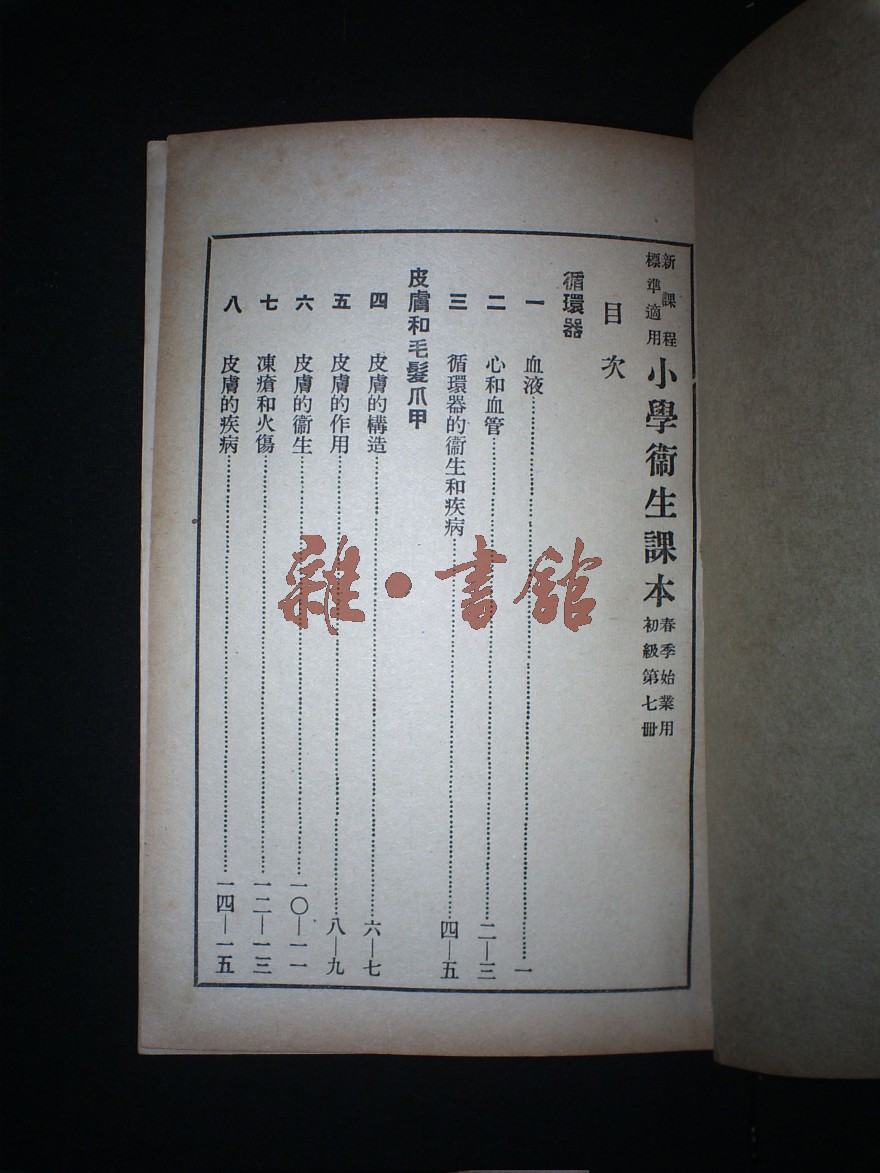 新課程
標準適用
小學衞生課本
春季始業用
初級第七冊
目次
循環器
一 血液 一
二 心和血管 二—三
三 循環器的衞生和疾病 四—五
皮膚和毛髮爪甲
四 皮膚的構造 六—七
五 皮膚的作用 八—九
六 皮膚的衞生 一〇—一一
七 凍瘡和火傷 一二—一三
八 皮膚的疾病 一四—一五
雜·書館